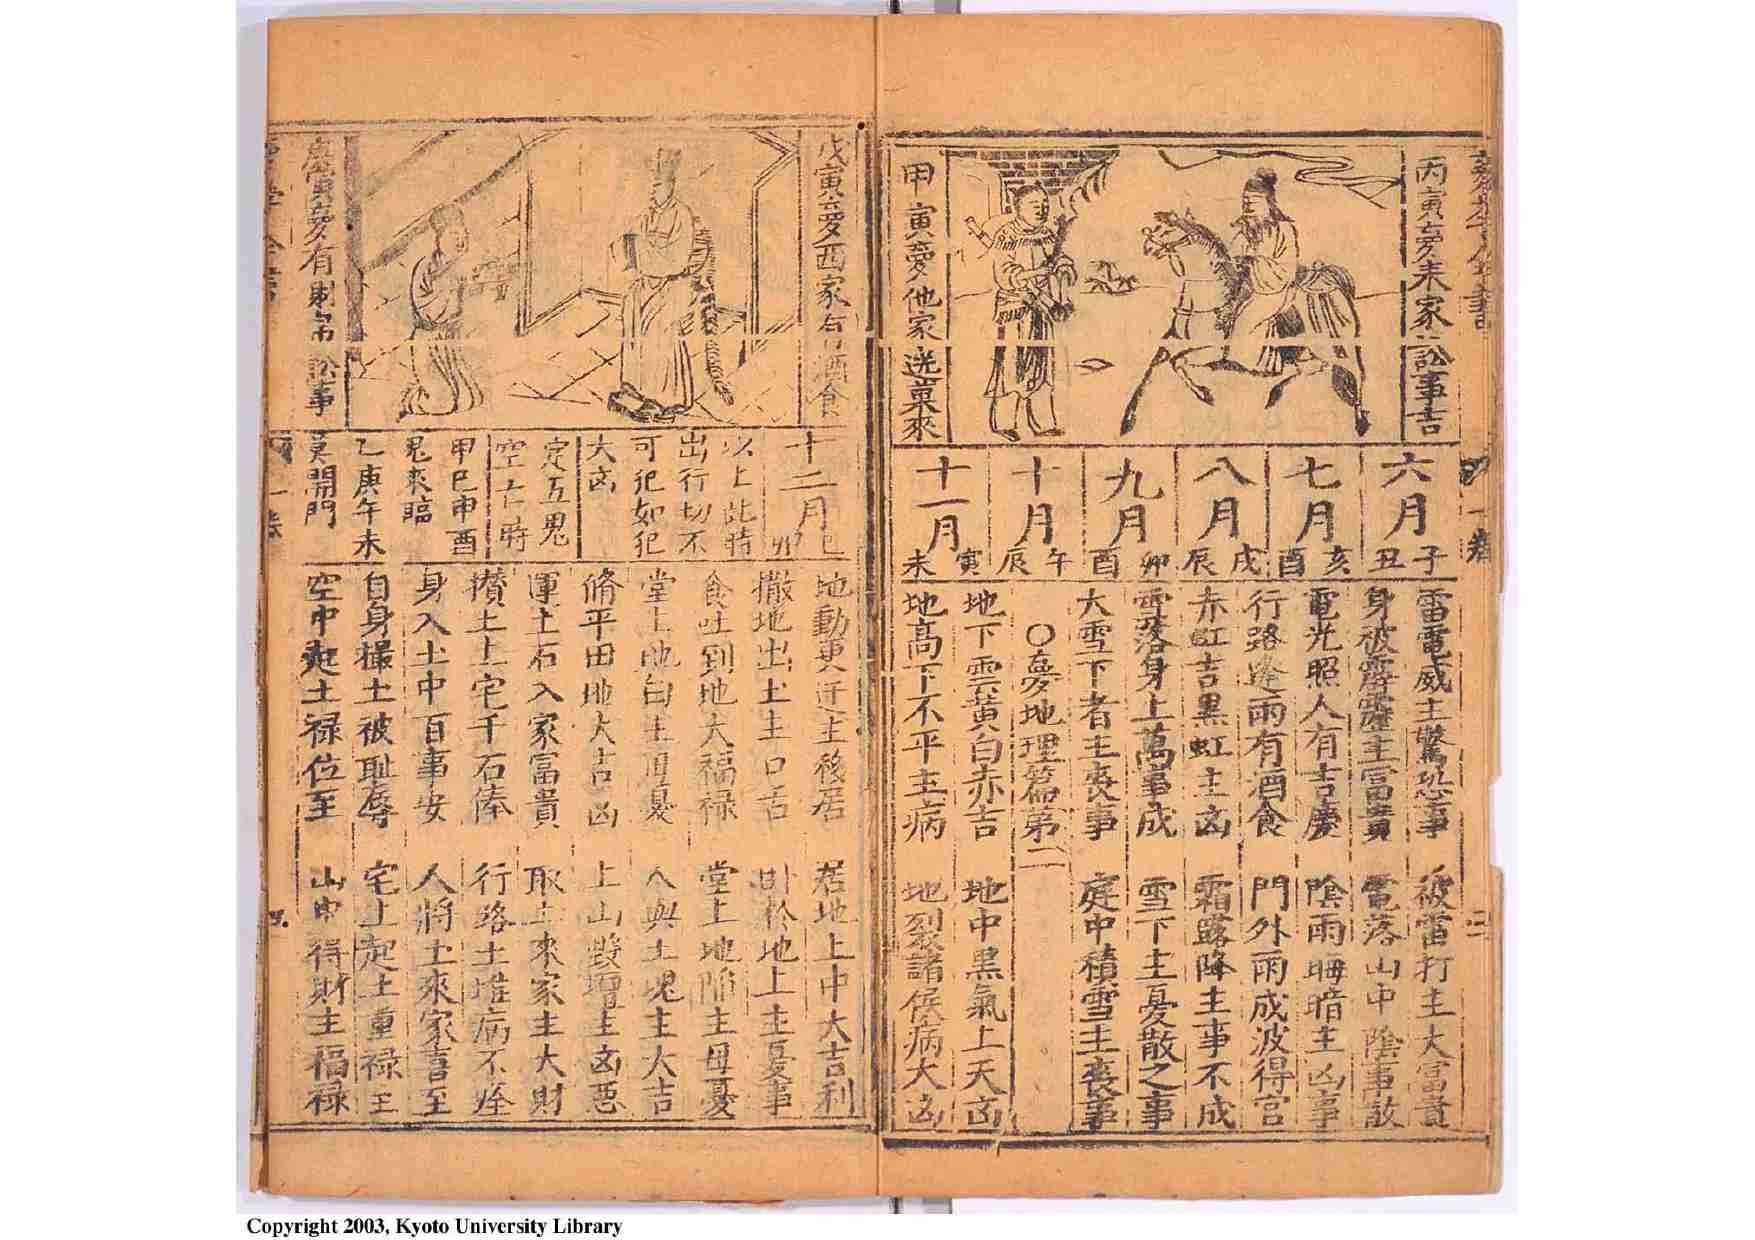 丙寅夢未家訟事吉
甲寅夢他家送菓來
六月 子丑
七月 亥酉
八月 戌辰
九月 卯酉
十月 午辰
十一月 寅未
雷電威主驚恐事 被雷打主大富貴
身被霹靂主富貴 電落山中陰事散
電光照人有吉慶 陰雨晦暗主凶事
行路逢雨有酒食 門外雨成波得官
赤虹吉黑虹主凶 霜露降主事不成
雪落身上萬事成 雪下主憂散之事
大雪下者主喪事 庭中積雪主喪事
〇夢地理篇第二
地下雲黃白赤吉 地中黑氣上天凶
地高下不平主病 地裂諸侯病大凶
戊寅夢西家有酒食
庚寅夢有財帛訟事
十二月 巳卯
以上此時
出行切不
可犯如犯
大凶
定五鬼
空亡時
甲巳申酉
鬼來臨
乙庚午未
莫開門
地動更迁主移居 居地上中大吉利
撒地出土主口舌 卧於地上主憂事
食吐到地大福禄 堂上地陷主母憂
堂上地白主憂 人與土塊主大吉
脩平田地大吉凶 上山毀壇主凶惡
運土石入家富貴 取土來家主大財
攢土上宅千石俸 行路土堆病不痊
身入土中百事安 人將土來家喜至
自身撮土被耻辱 宅上起土重禄至
空中起土禄位至 山中得財主福禄
Copyright 2003, Kyoto University Library